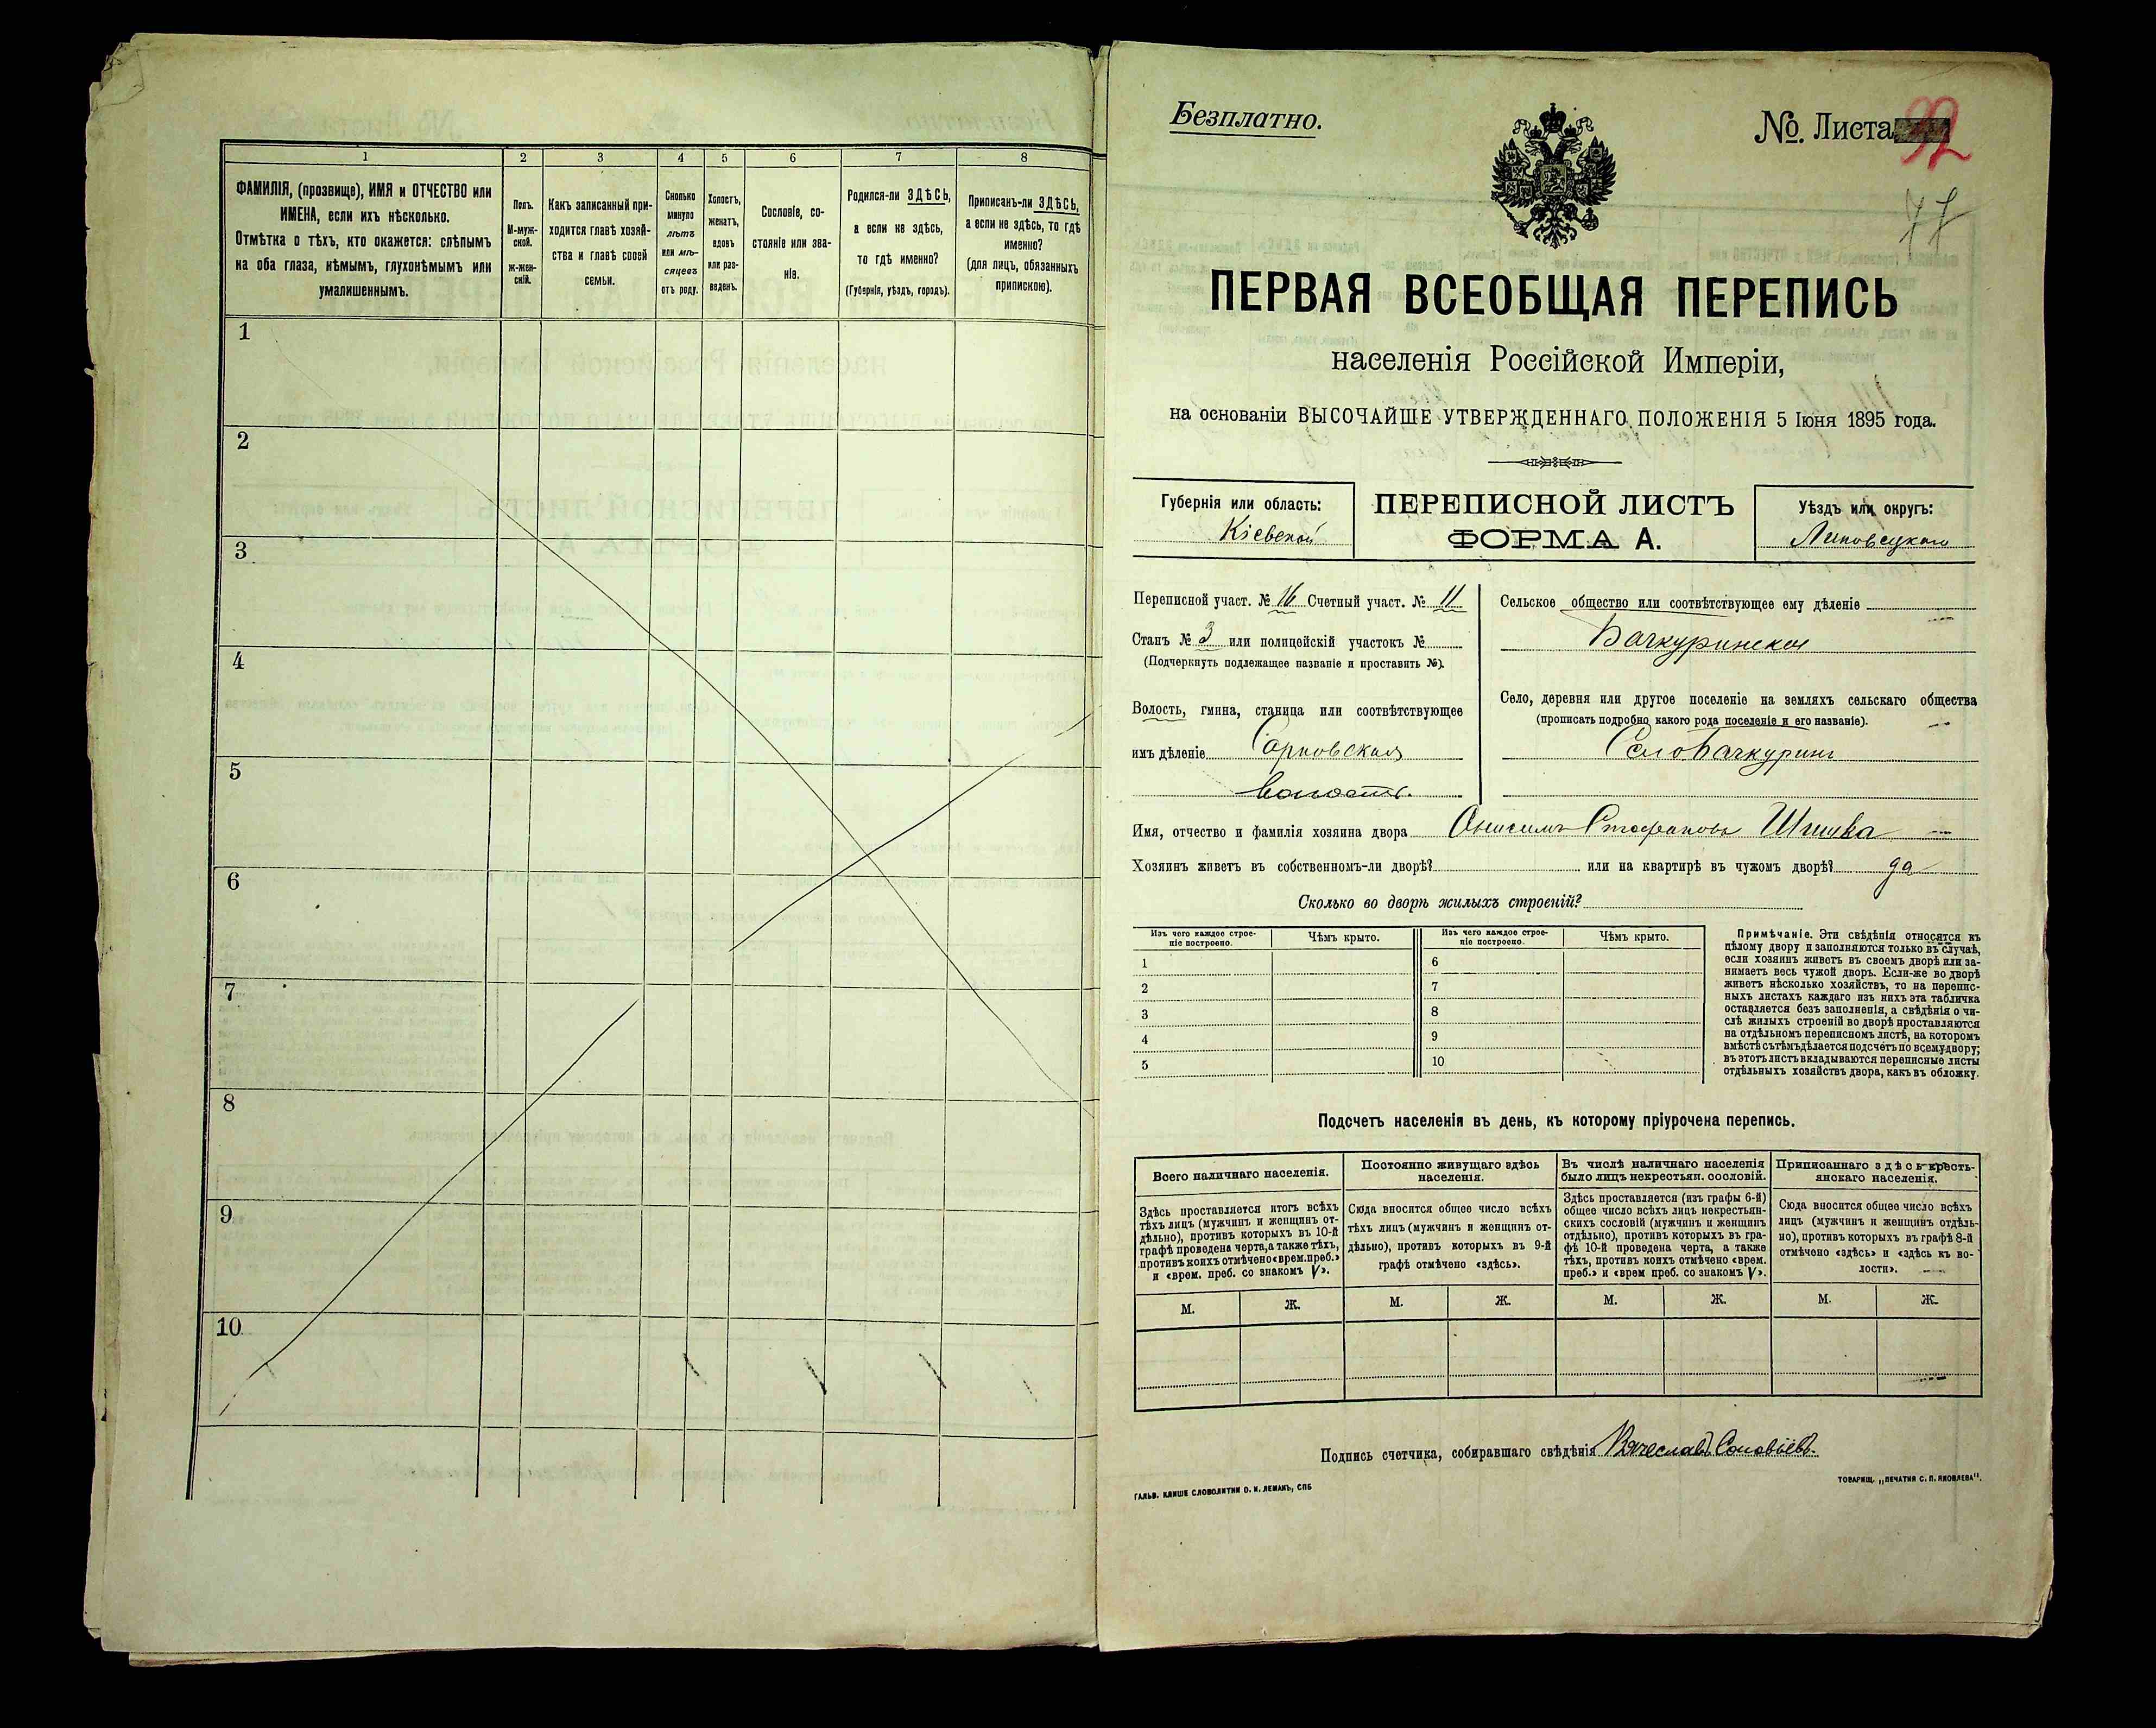 1 2 3 4 5 6 7 8
ФАМИЛІЯ, (прозвище), ИМЯ и ОТЧЕСТВО или
ИМЕНА, если ихъ нѣсколько.
Отмѣтка о тѣхъ, кто окажется: слѣпымъ
на оба глаза, нѣмымъ, глухонѣмымъ или
умалишеннымъ.
Полъ.
М-муж-
ской.
ж-жен-
скій.
Какъ записанный при-
ходится главѣ хозяй-
ства и главѣ своей
семьи.
Сколько
минуло
лѣтъ
или мѣ-
сяцевъ
отъ роду.
Холостъ,
женатъ,
вдовъ
или раз-
веденъ.
Сословіе, со-
стояніе или зва-
ніе.
Родился-ли ЗДѢСЬ,
а если не здѣсь,
то гдѣ именно?
(Губернія, уѣздъ, городъ).
Приписанъ-ли ЗДѢСЬ,
а если не здѣсь, то гдѣ
именно?
(для лицъ, обязанныхъ
припискою).
1
2
3
4
5
6
7
8
9
10
Безплатно.
№ Листа 92
77
ПЕРВАЯ ВСЕОБЩАЯ ПЕРЕПИСЬ
населенія Россійской Имперіи,
на основаніи ВЫСОЧАЙШЕ УТВЕРЖДЕННАГО ПОЛОЖЕНІЯ 5 Іюня 1895 года.
Губернія или область:
Кіевской
ПЕРЕПИСНОЙ ЛИСТЪ
ФОРМА А.
Уѣздъ или округъ:
Липовецкаго
Переписной участ. № 16 Счетный участ. № 11
Станъ № 3 или полицейскій участокъ №
(Подчеркнуть подлежащее названіе и проставить №).
Волость, гмина, станица или соотвѣтствующее
имъ дѣленіе
волость.
Сельское общество или соотвѣтствующее ему дѣленіе
Бачкуринское
Село, деревня или другое поселеніе на земляхъ сельскаго общества
(прописать подробно какого рода поселеніе и его названіе).
Село Бачкурин
Имя, отчество и фамилія хозяина двора Онисимъ Стефановъ Шишка
Хозяинъ живетъ въ собственномъ-ли дворѣ? или на квартирѣ въ чужомъ дворѣ? да
Сколько во дворѣ жилыхъ строеній?
Изъ чего каждое строе-
ніе построено.
Чѣмъ крыто.
Изъ чего каждое строе-
ніе построено.
Чѣмъ крыто.
1 6
2 7
3 8
4 9
5 10
Примѣчаніе. Эти свѣдѣнія относятся къ
цѣлому двору и заполняются только въ случаѣ,
если хозяинъ живетъ въ своемъ дворѣ или за-
нимаетъ весь чужой дворъ. Если-же во дворѣ
живетъ нѣсколько хозяйствъ, то на перепис-
ныхъ листахъ каждаго изъ нихъ эта табличка
оставляется безъ заполненія, а свѣдѣнія о чи-
слѣ жилыхъ строеній во дворѣ проставляются
на отдѣльномъ переписномъ листѣ, на которомъ
вмѣстѣ съ тѣмъ дѣлается подсчетъ по всему двору;
въ этотъ листъ вкладываются переписные листы
отдѣльныхъ хозяйствъ двора, какъ въ обложку.
Подсчетъ населенія въ день, къ которому пріурочена перепись.
Всего наличнаго населенія.
Постоянно живущаго здѣсь
населенія.
Въ числѣ наличнаго населенія
было лицъ некрестьян. сословій.
Приписаннаго здѣсь кресть-
янскаго населенія.
Здѣсь проставляется итогъ всѣхъ
тѣхъ лицъ (мужчинъ и женщинъ от-
дѣльно), противъ которыхъ въ 10-й
графѣ проведена черта, а также тѣхъ,
противъ коихъ отмѣчено «врем. преб.»
и «врем. преб. со знакомъ V».
Сюда вносится общее число всѣхъ
тѣхъ лицъ (мужчинъ и женщинъ от-
дѣльно), противъ которыхъ въ 9-й
графѣ отмѣчено «здѣсь».
Здѣсь проставляется (изъ графы 6-й)
общее число всѣхъ лицъ некрестьян-
скихъ сословій (мужчинъ и женщинъ
отдѣльно), противъ которыхъ въ гра-
фѣ 10-й проведена черта, а также
тѣхъ, противъ коихъ отмѣчено «врем.
преб.» и «врем преб. со знакомъ V».
Сюда вносится общее число всѣхъ
лицъ (мужчинъ и женщинъ отдѣль-
но), противъ которыхъ въ графѣ 8-й
отмѣчено «здѣсь» и «здѣсь къ во-
лости».
М. Ж. М. Ж. М. Ж. М. Ж.
Подпись счетчика, собиравшаго свѣдѣнія Вячеславъ Соловьевъ
ГАЛЬВ. КЛИШЕ СЛОВОЛИТНИ О. И. ЛЕМАНЪ, СПБ
ТОВАРИЩ. „ПЕЧАТНЯ С. П. ЯКОВЛЕВА".